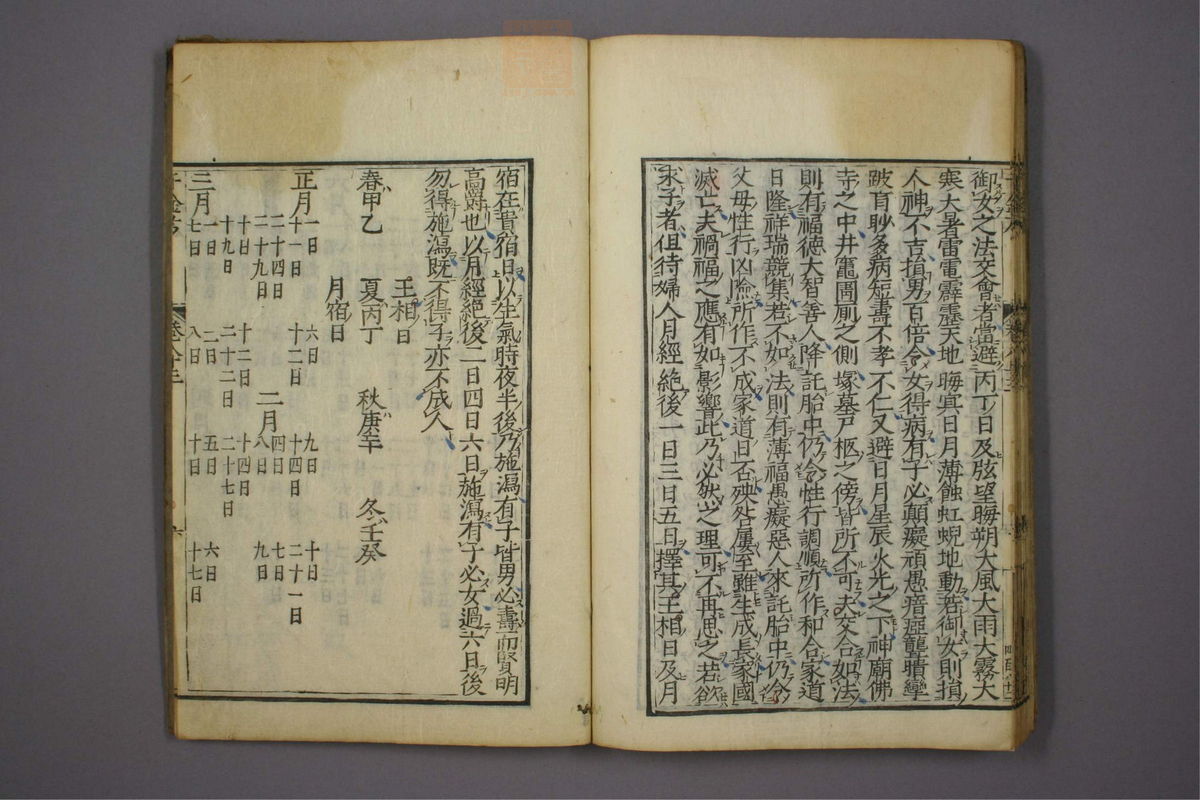 御女之法交會者當避丙丁日及弦望晦朔大風大雨大霧大
寒大暑雷電霹靂天地晦冥日月薄蝕虹蜺地動若御女則損
人神不吉損男百倍令女得病有子必顛癡頑愚瘖瘂聾聵攣
跛盲眇多病短壽不孝不仁又避日月星辰火光之下神廟佛
寺之中井竈圊厠之側塚墓尸柩之傍皆所不可夫交合如法
則有福德大智善人降託胎中仍令性行調順所作和合家道
日隆祥瑞競集若不如法則有薄福愚癡惡人來託胎中仍令
父母性行凶險所作不成家道日否殃咎屢至雖生成長家國
滅亡夫禍福之應有如影響此乃必然之理可不再思之若欲
求子者但待婦人月經絶後一日三日五日擇其王相日及月
宿在貴宿日以生氣時夜半後乃施瀉有子皆男必壽而賢明
高爵也以月經絶後二日四日六日施瀉有子必女過六日後
勿得施瀉既不得子亦不成人
王相日
春甲乙 夏丙丁 秋庚辛 冬壬癸
月宿日
正月 一日 六日 九日 十日
十一日 十二日 十四日 二十一日
二十四日 二十九日
二月 四日 七日
八日 九日
十日 十二日 十四日
十九日 二十二日 二十七日
三月 一日 二日 五日 六日
七日 八日 十日 十七日